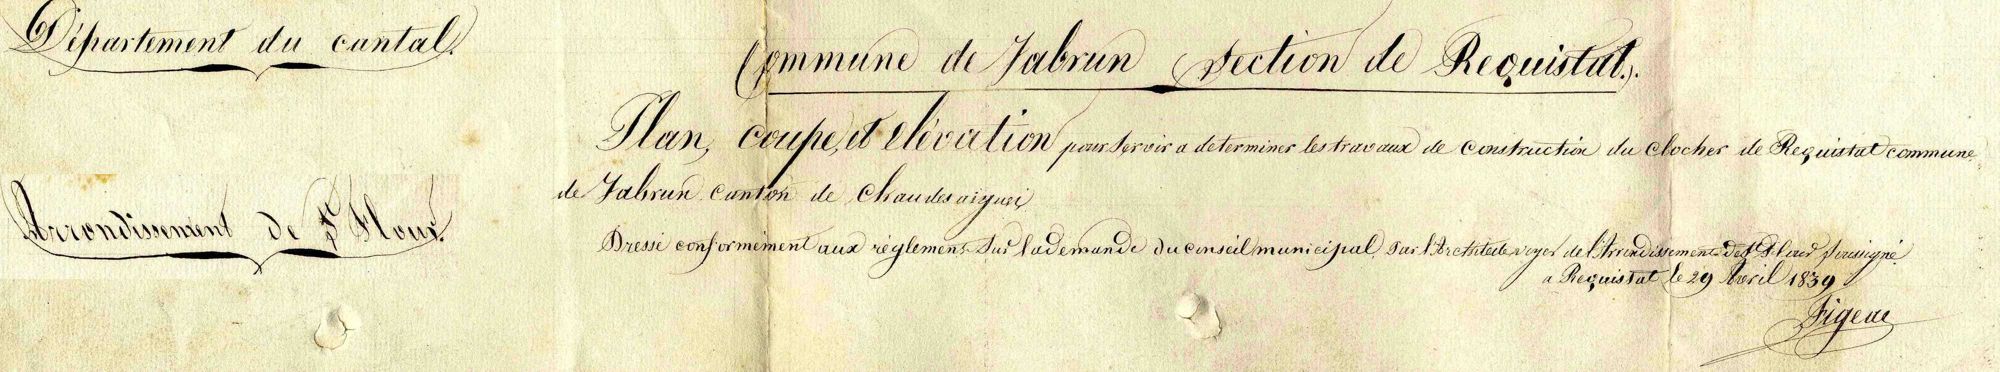 Département du cantal.
Commune de Jabrun (Section de Requistat.).
Plan, coupe, et élévation pour servir a determiner les travaux de construction du clocher de Requistat commune
de Jabrun canton de Chaudesaigues
Arrondissement de St Flour.
Dressé conformément aux réglemens sur la demande du conseil municipal, par l'Architecte voyer de l'Arrondissement de St Flour soussigné.
a Requistat le 29 Avril 1839
Figeac